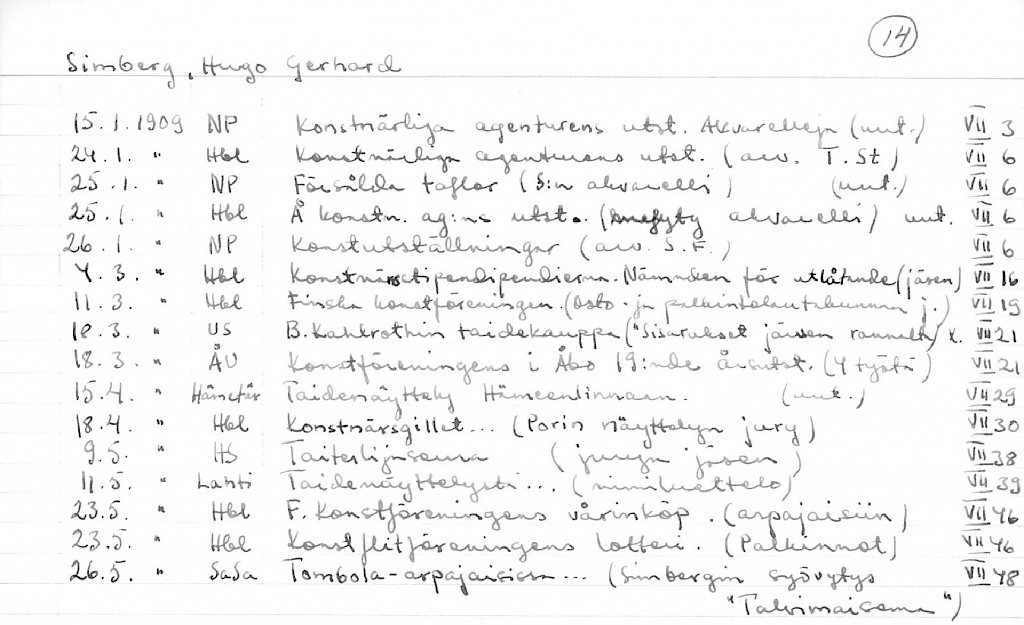 14
Simberg, Hugo Gerhard
15.1.1909 NP Konstnärliga agenturens utst. Akvarelleja (uut.) VII 3
24.1. " Hbl Konstnärliga agenturens utst. (arv. T. St) VII 6
25.1. " NP Försålda taflor (S:n akvarelli) (uut.) VII 6
25.1. " Hbl Å konstn. ag:ns utst. ( akvarelli) uut. VII 6
26.1. " NP Konstutställningar (arv. S.F.) VII 6
4.3. " Hbl Nämnden för utlåtande (jäsen) VII 16
11.3. " Hbl Finska konstföreningen. (Osto- ja palkintolautakunnan j.) VII 19
18.3. " US B. Kahlrothin taidekauppa ("Sisarukset järven rannalla) VII 21
18.3. " ÅU Konstföreningens i Åbo 19:nde årsutst. (4 työtä) VII 21
15.4. " Hämetär Taidenäyttely Hämeenlinnaan. (uut.) VII 29
18.4. " Hbl Konstnärsgillet... (Porin näyttelyn jury) VII 30
9.5. " HS Taiteilijaseura (juryn jäsen) VII 38
11.5. " Lahti Taidenäyttelystä... (nimiluettelo) VII 39
23.5. " Hbl F. Konstföreningens vårinköp. (arpajaisiin) VII 46
23.5. " Hbl Konstflitföreningens lotteri. (Palkinnot) VII 46
26.5. " SaSa Tombola-arpajaisissa... (Simbergin syövytys VII 48
"Talvimaisema")